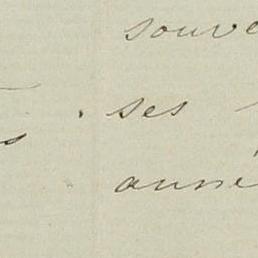 souve
ses
année